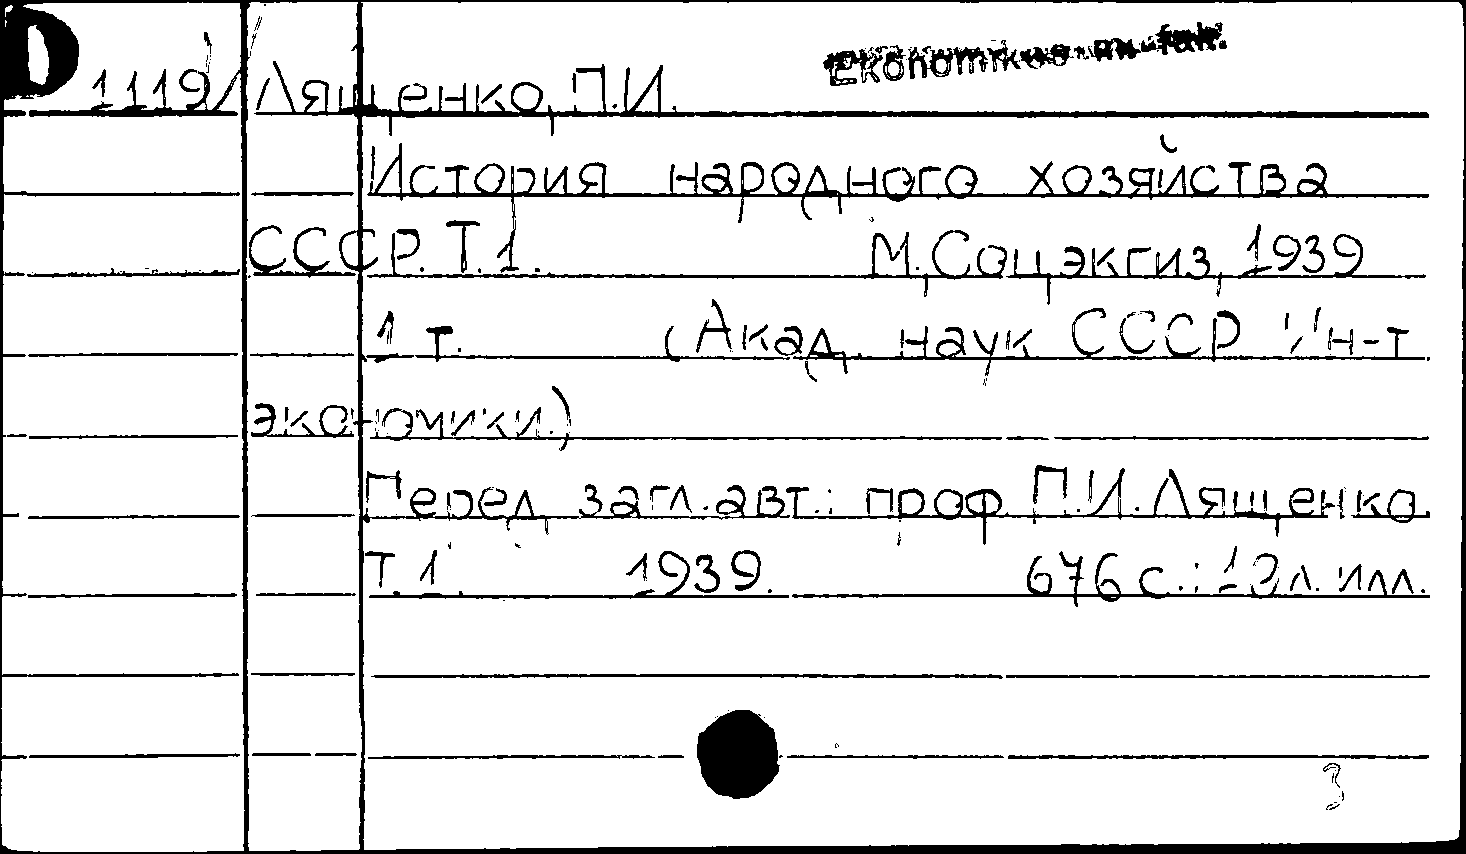 D 1119/ Лященко, П.И.
Ekonomikos fak.
История народного хозяйства
СССР. Т.1. М., Соцэкгиз, 1939
1 т. (Акад. наук СССР Ин-т
экономики.)
Перед загл. авт.: проф. П.И. Лященко.
Т.1. 1939. 676 с.: л. илл.
3